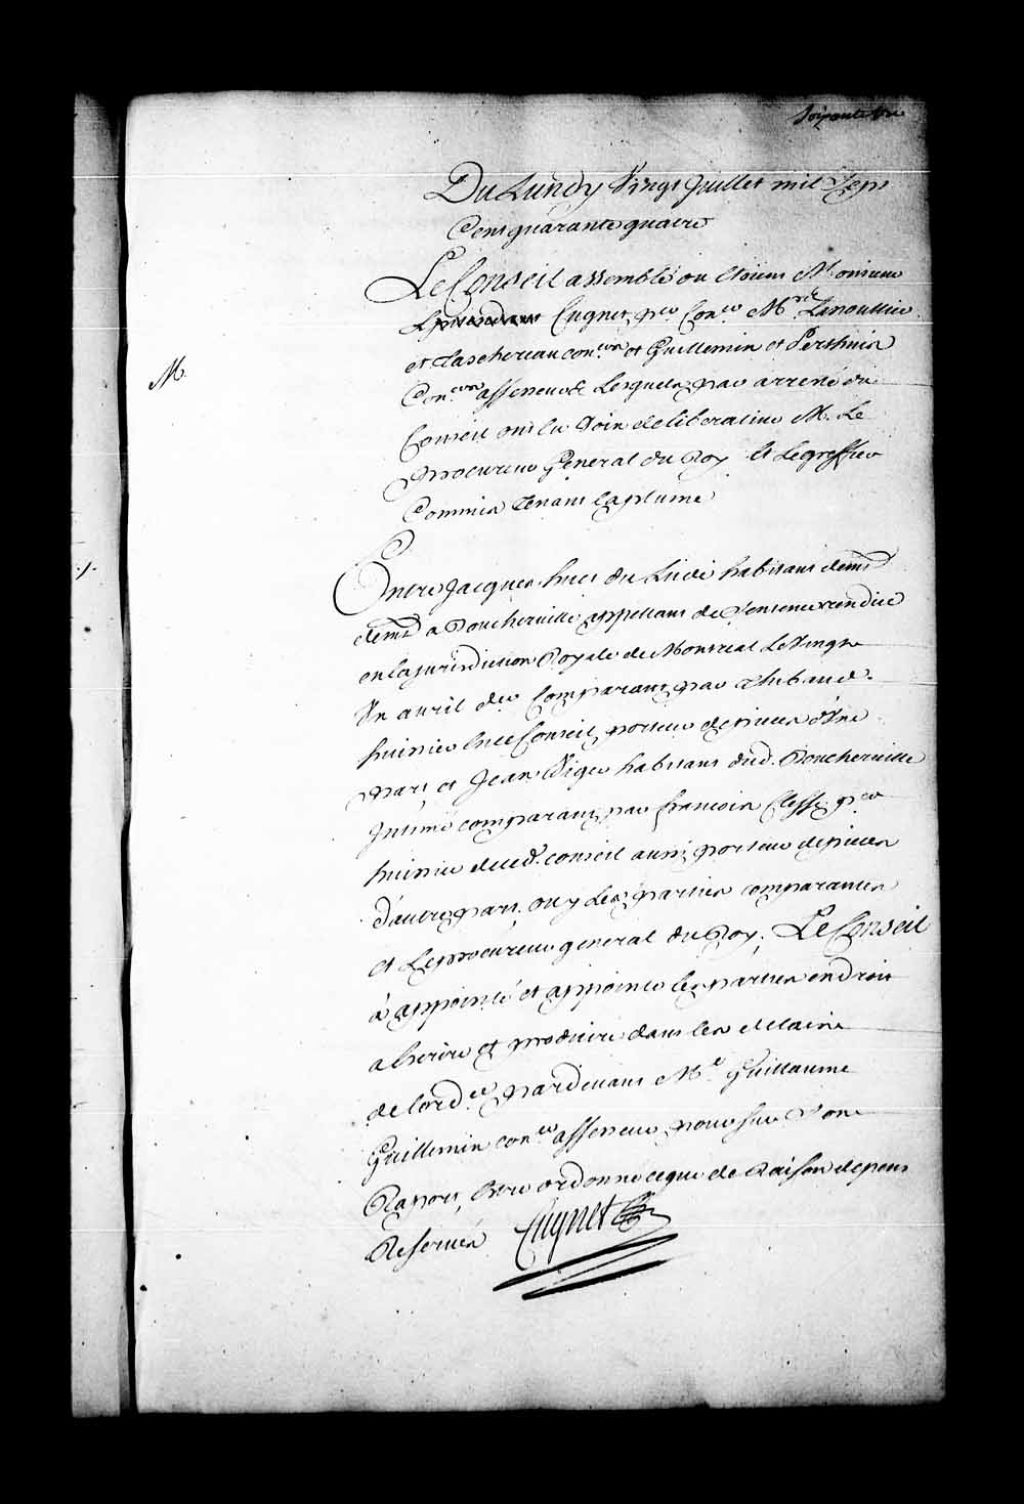 Soixante
Du Lundy Vingt Juillet mil Sept
Cent quarante quatre
Le Conseil assemblé ou etoient Monsieur
Cugnet per Coner Mrs Lanoullier
et Taschereau coners et Guillemin et Perthuis
M.
Coners assesseurs Lesquels par arresté du
Conseil ont eu Voix deliberative M. Le
procureur General du Roy et Le greffier
Commis tenant la plume
Entre Jacques huet du Lude habitant demt
demt a Boucherville appellant de Sentence rendue
en la jurisdiction Royale de Montreal Le Vingt
Un avril der Comparant par thibaud
huissier en ce Conseil porteur de pieces d'Une
part et Jean Viger habitant dud. Boucherville
Intimé comparant par francois Clesse per
huissier de ced. conseil aussi porteur de pieces
d'autre part. ouy Les parties comparantes
et Le procureur general du Roy. Le Conseil
à appointé et appointe les parties en droit
a Ecrire et produire dans les delais
de l'ordce pardevant Me Guillaume
Guillemin coner assesseur pour sur Son
Raport Etre ordonné ce que de Raison depens
Reservés Cugnet